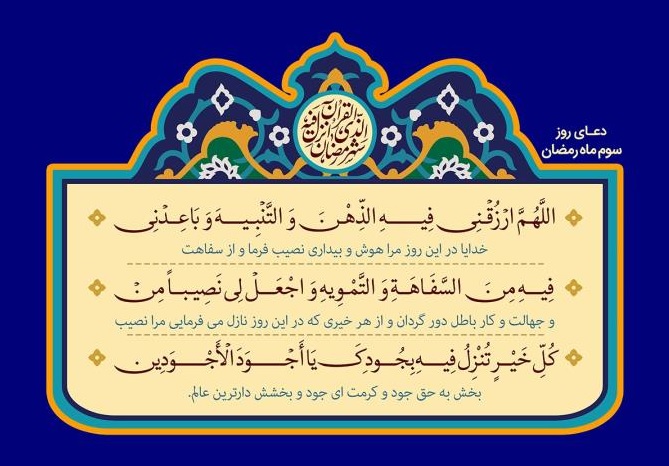 شهر رمضان الذی انزل فیه القرآن
دعای روز
سوم ماه رمضان
اللَّهُمَّ ارْزُقْنِی فِیهِ الذِّهْنَ وَ التَّنْبِیهَ وَ بَاعِدْنِی
خدایا در این روز مرا هوش و بیداری نصیب فرما و از سفاهت
فِیهِ مِنَ السَّفَاهَةِ وَ التَّمْوِیهِ وَ اجْعَلْ لِی نَصِیباً مِنْ
و جهالت و کار باطل دور گردان و از هر خیری که در این روز نازل می فرمایی مرا نصیب
کُلِّ خَیْرٍ تُنْزِلُ فِیهِ بِجُودِکَ یَا أَجْوَدَ الْأَجْوَدِینَ
بخش به حق جود و کرمت ای جود و بخشش دارترین عالم.